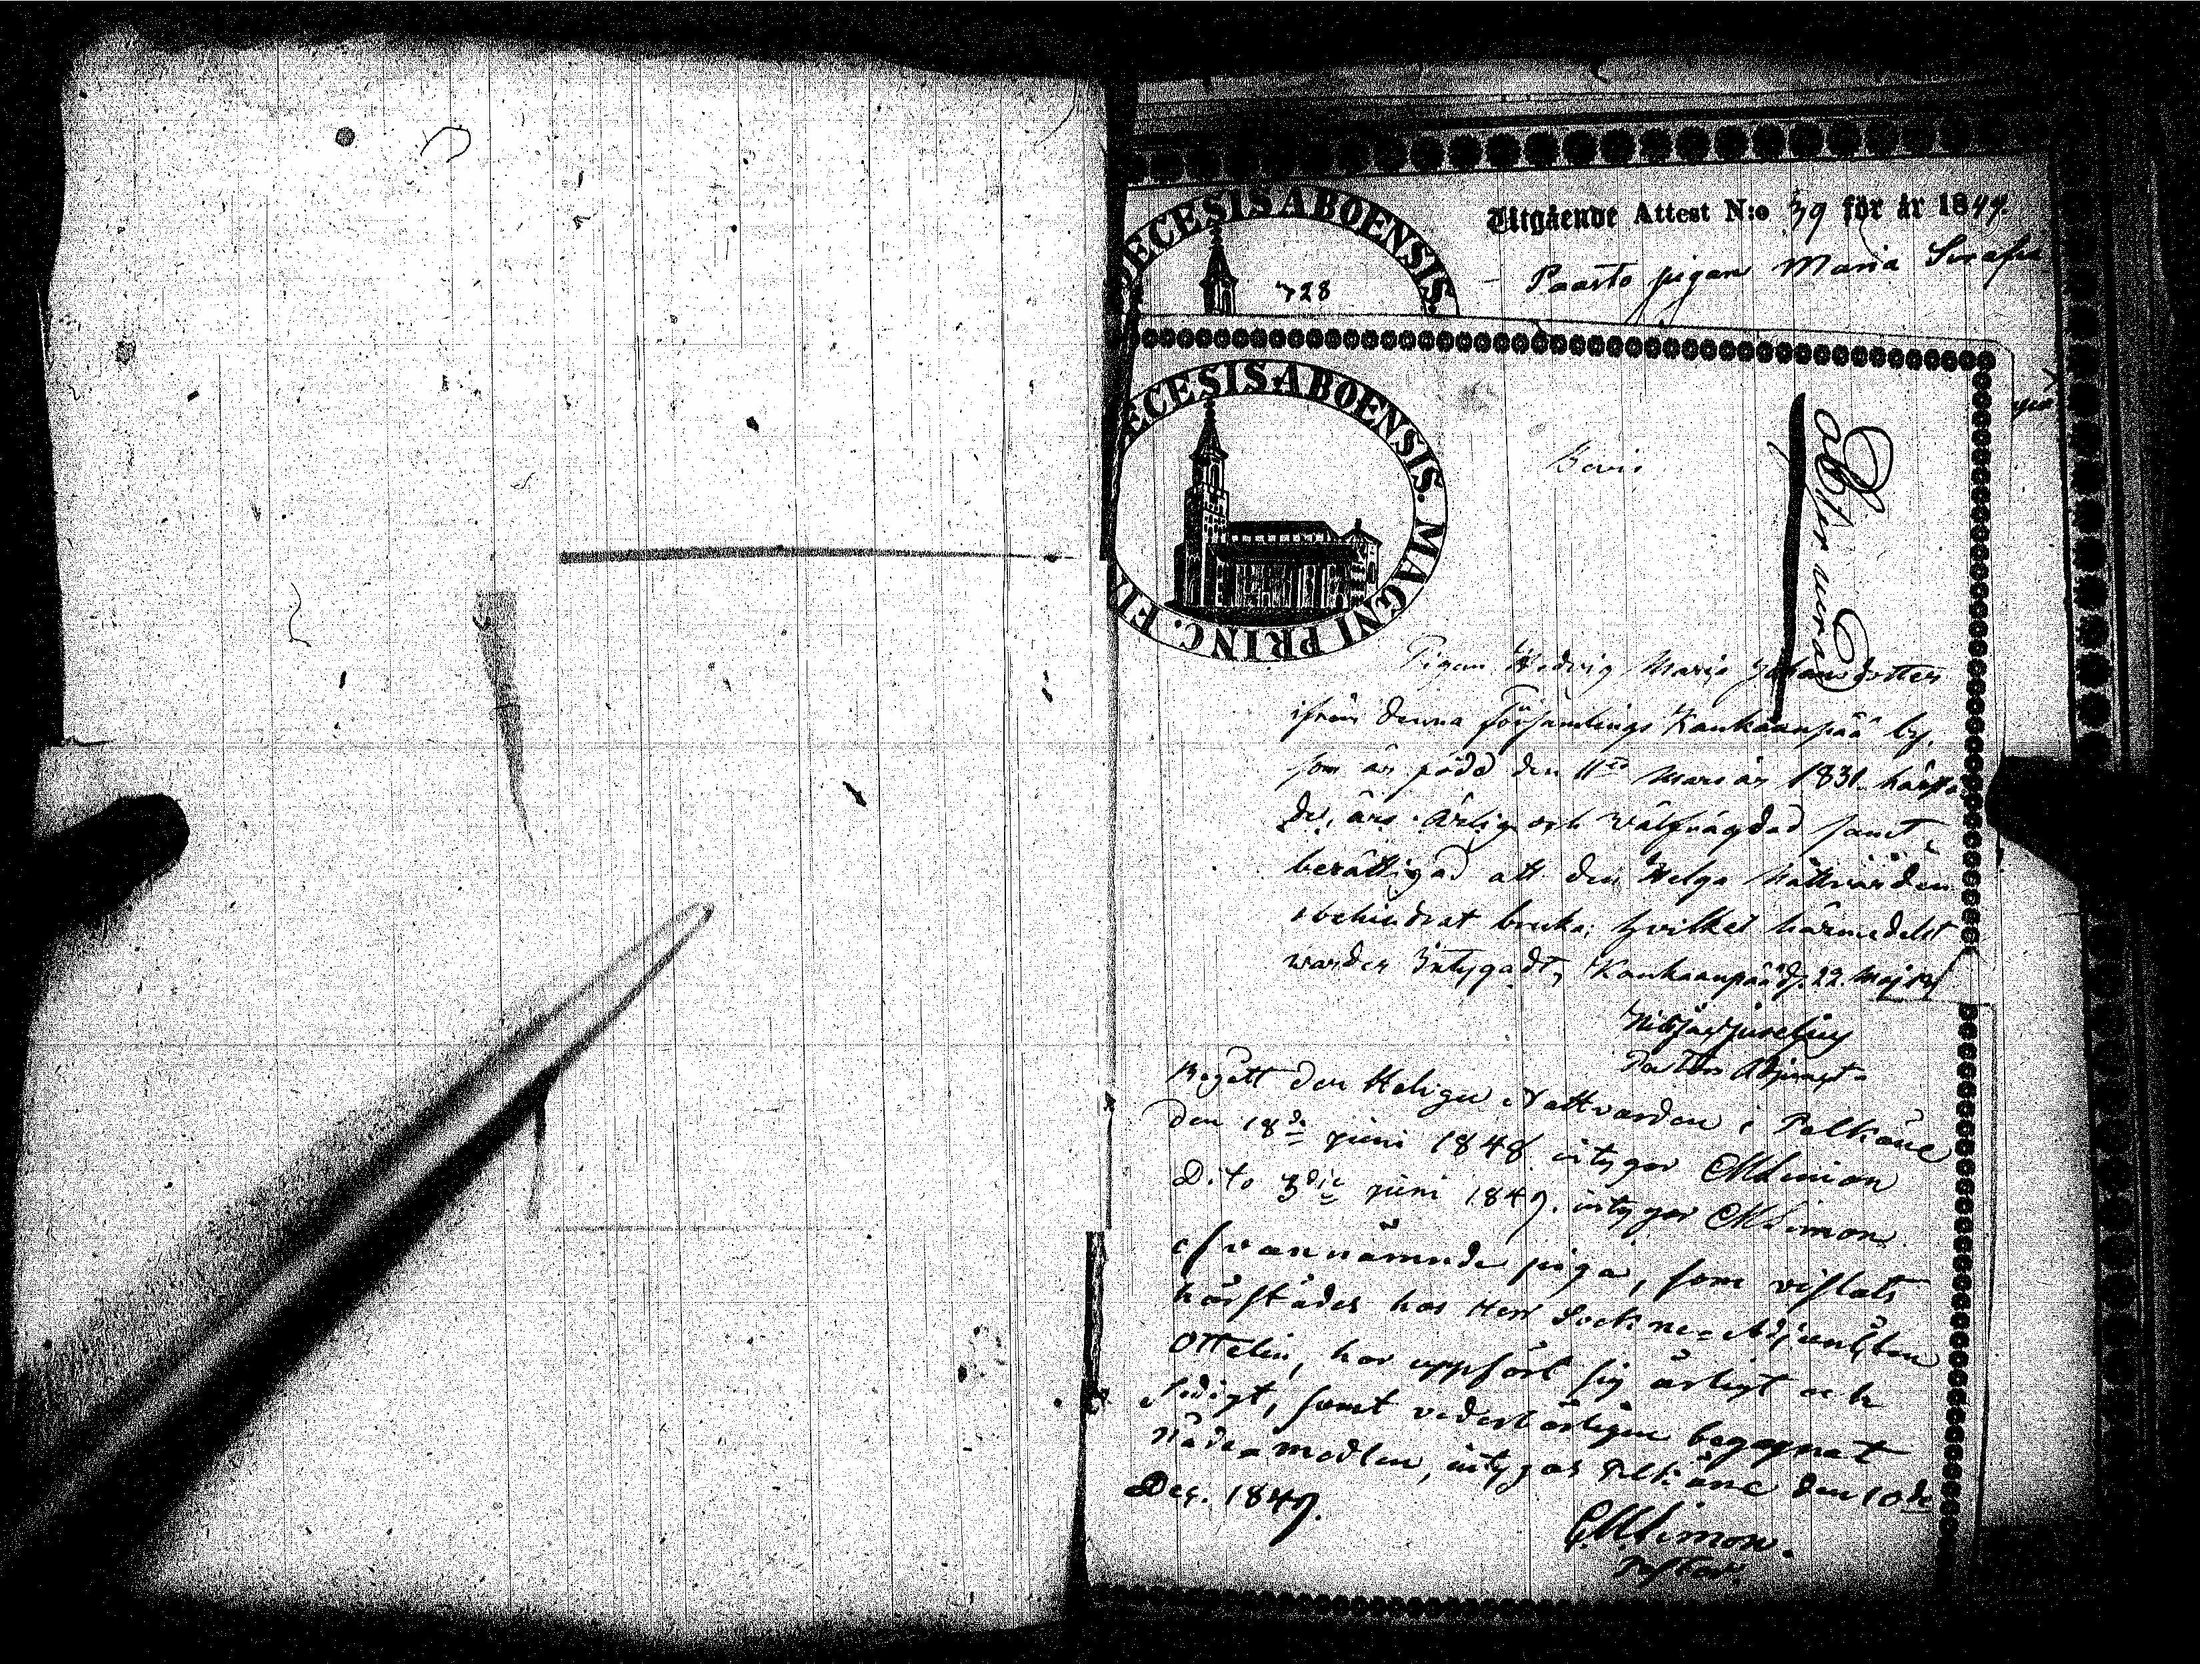 DECESIS ABOENSIS.
728
Utgående Attest N:o 39 för år 1849.
Paasto pigan Maria Serafia
ECESIS ABOENSIS. MAGNI PRINC. FIN
Bevis
Pigan Hedvig Maria Johansdotter
ifrån denna församlings Kankaanpää by,
som är född den 11te Mars år 1831. härstä
des, ärlig och välfrägdad samt
berättigad att den Helga Nattvarden
obehindrat bruka; hvilket härmedelst
warder Intygadt, Kankaanpää d. 22. Maj
Pastors Adjunct.
Begått den Heliga Nattvarden i Pelkäne
den 18de Juni 1848. intygar CMLimon
Dito 3die Juni 1849. intygar CMLimon
Ofvannämnde piga, som vistats
härstädes hos Herr Sockne-Adjunkten
Ottelin, har uppfört sig ärligt och
sedigt, samt vederbörligen begagnat
Nådemedlen, intygas Pelkäne den 10de
Dec. 1849.
CMLimon.
Pastor.